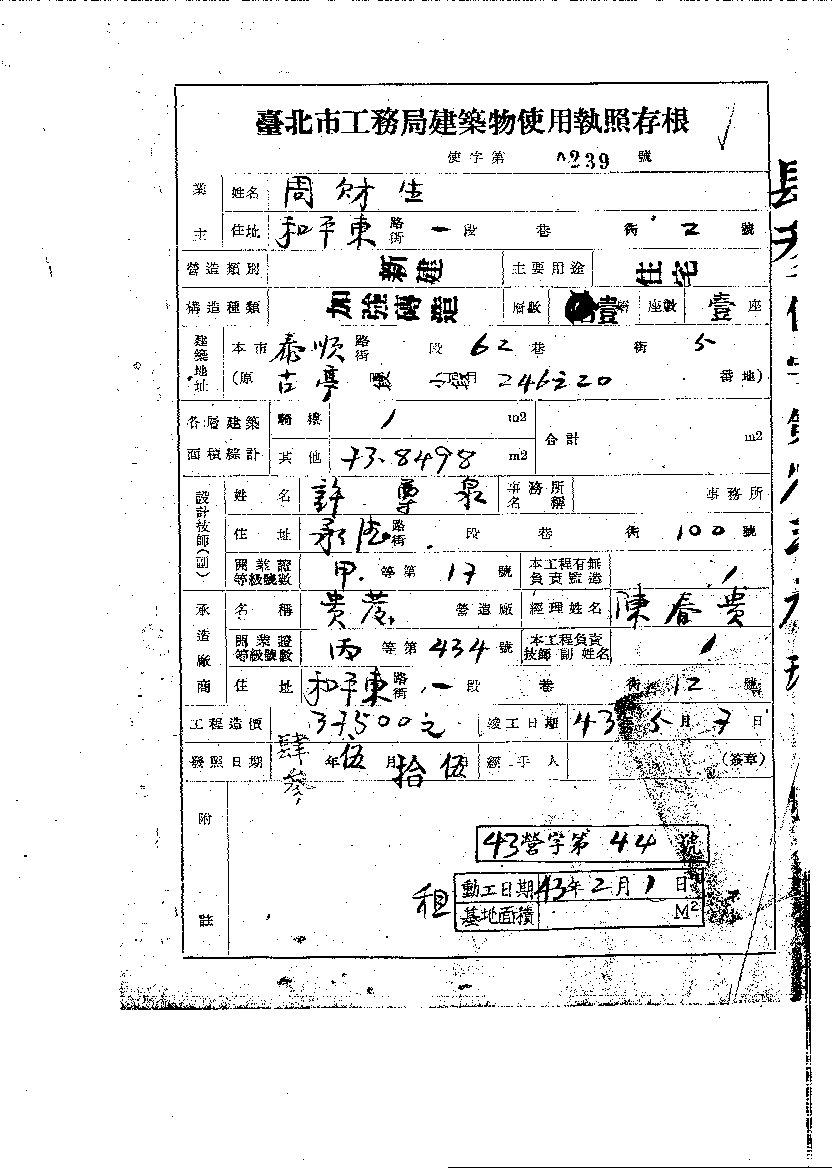 臺北市工務局建築物使用執照存根
使字第 0239 號
業主 姓名 周財生
住址 和平東路街一段 巷 街 2 號
營造類別 新建 主要用途 住宅
構造種類 加強磚造 層數 壹層 座數 壹座
建築地址 本市 泰順路街 段 62 巷 街 5
(原 古亭 段 246之20 番地)
各層建築面積總計 騎樓 / m2 合計 m2
其他 73.8498 m2
設計技師(副) 姓名 許 泉 事務所名稱 事務所
住址 承德路街 段 巷 街 100 號
開業證等級號數 甲 等第 17 號 本工程有無負責監造 /
承造廠商 名稱 貴 營造廠 經理姓名 陳春貴
開業證等級號數 丙 等第 434 號 本工程負責技師 副 姓名 /
住址 和平東路街 一段 巷 街 12 號
工程造價 37500元 竣工日期 43年5月7日
發照日期 肆參年伍月拾伍日 經手人 (簽章)
附註
43營字第 44 號
租
動工日期 43年2月1日
基地面積 M2